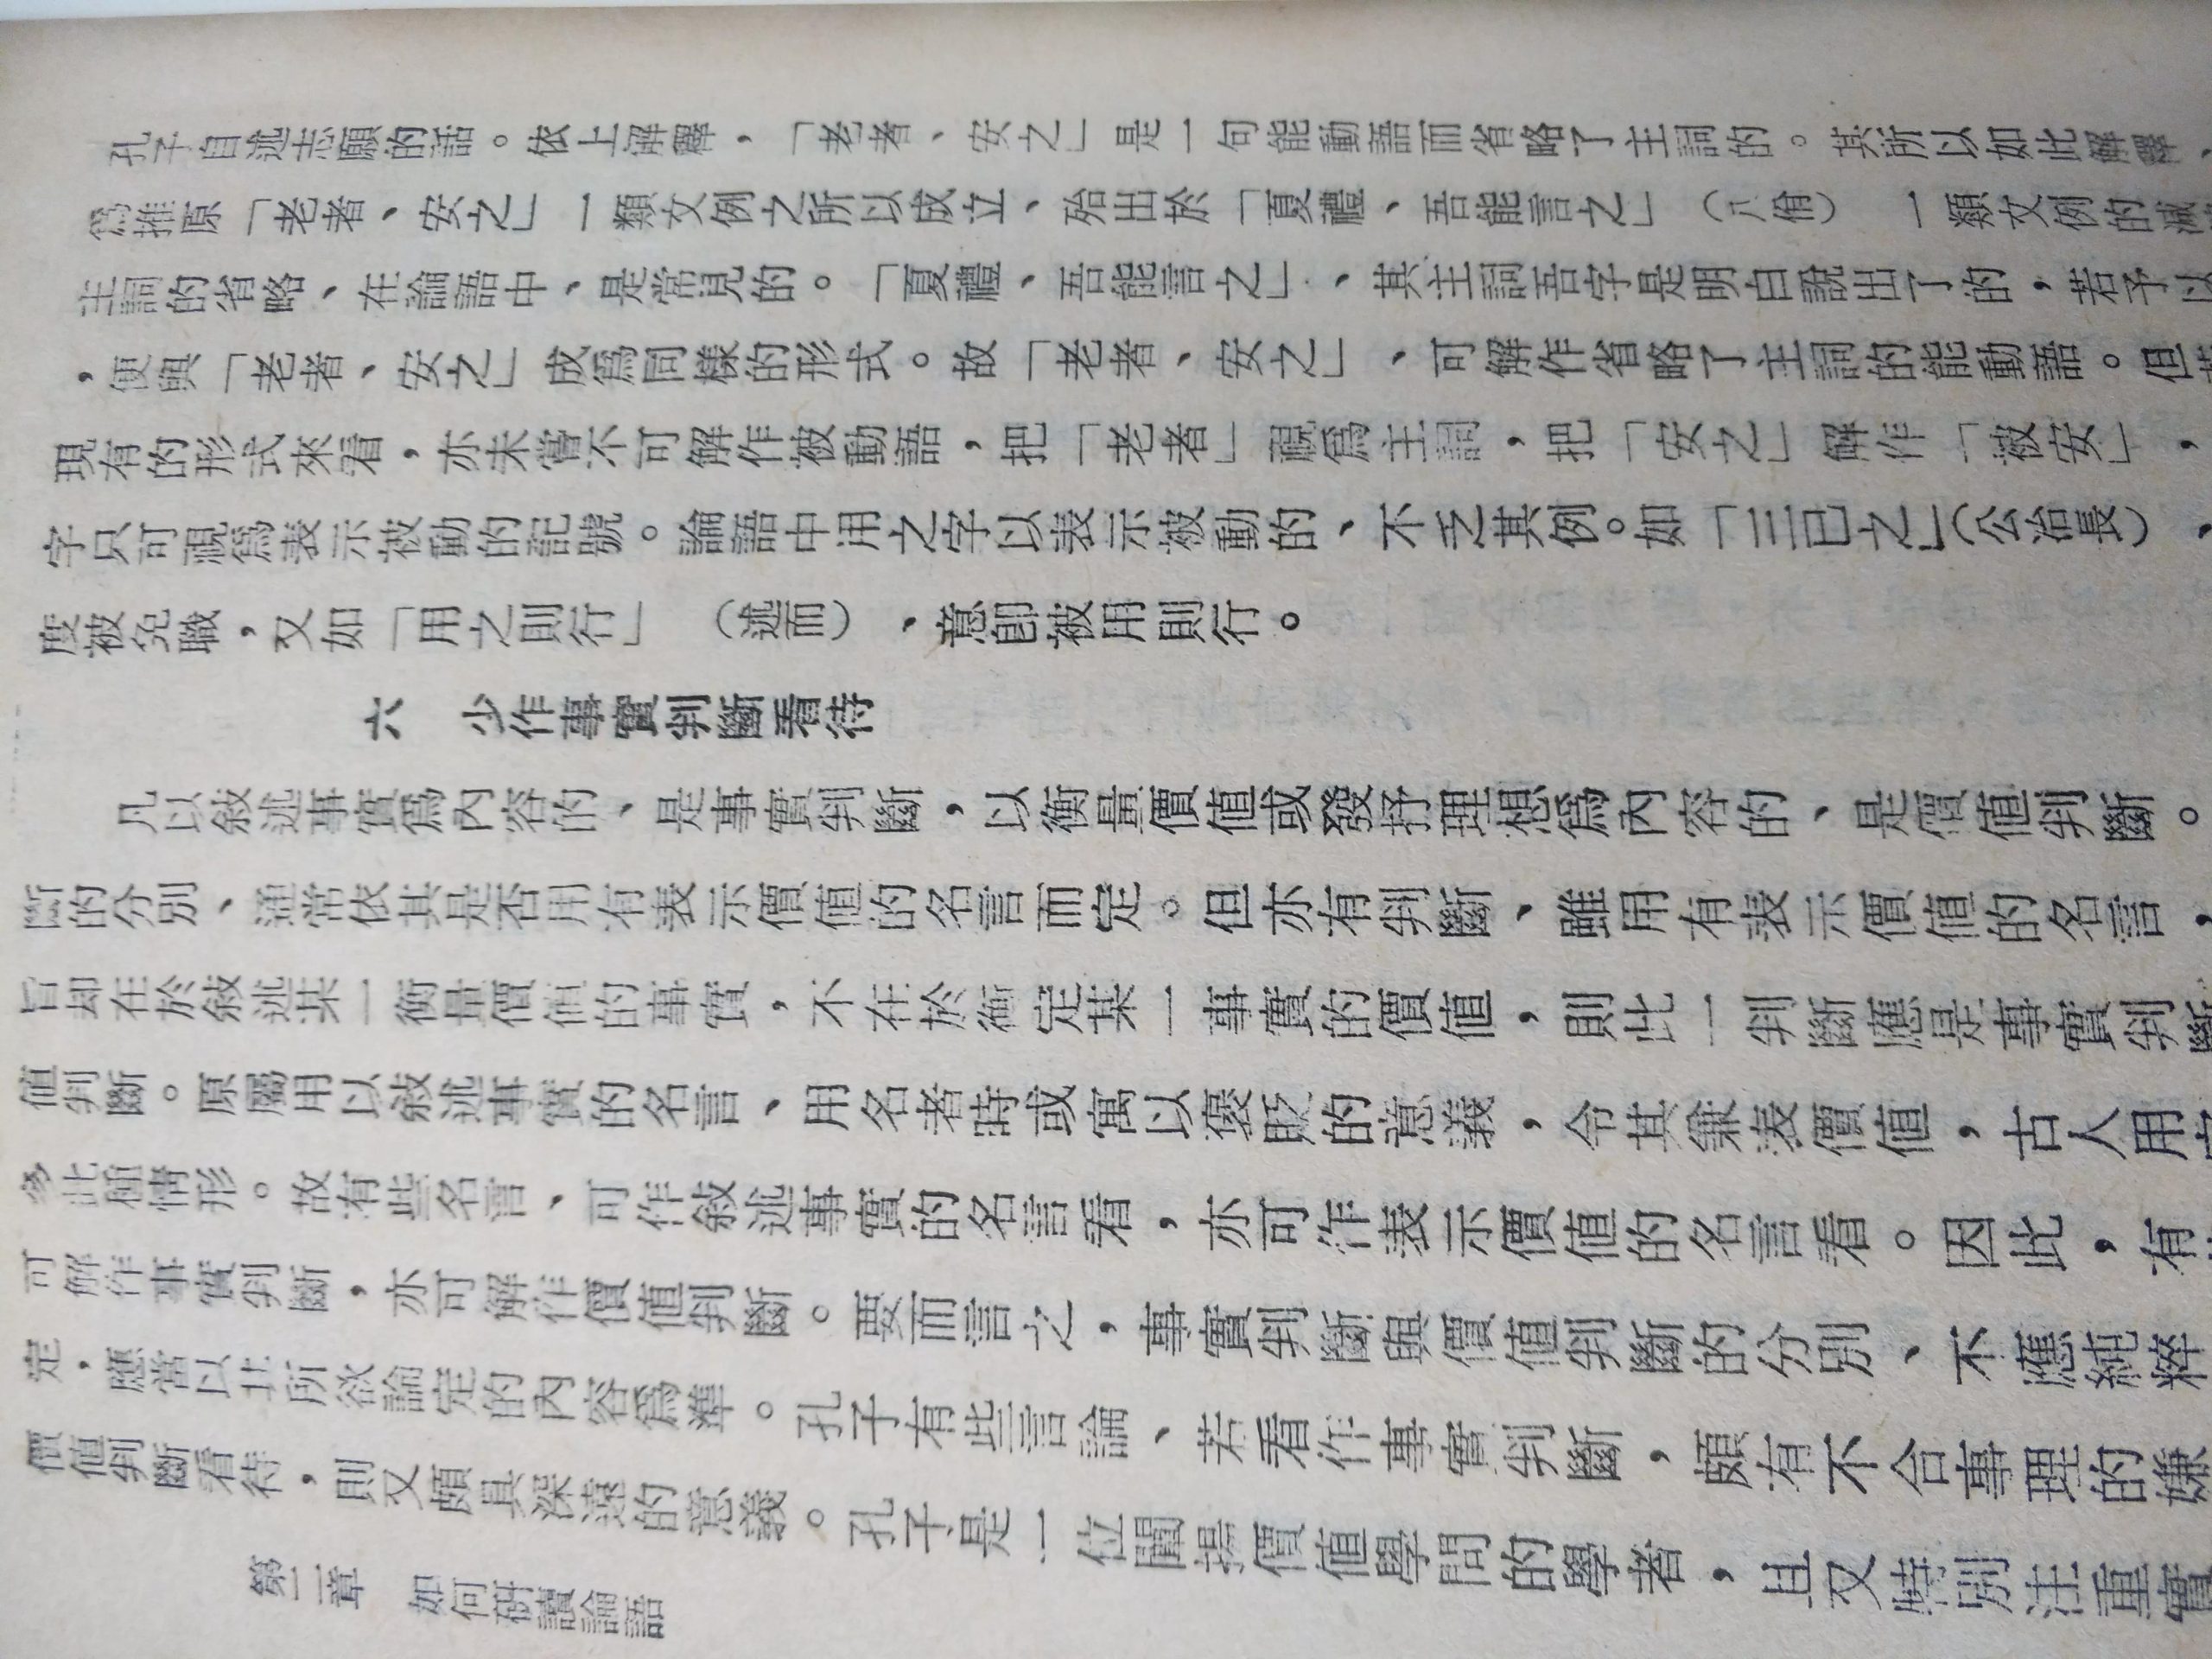 孔子自述志願的話。依上解釋，「老者、安之」是一句能動語而省略了主詞的。其所以如此解釋、
爲推原「老者、安之」一類文例之所以成立、殆出於「夏禮、吾能言之」（八佾）一類文例的減
主詞的省略、在論語中、是常見的。「夏禮、吾能言之」、其主詞吾字是明白說出了的，若予以
，便與「老者、安之」成爲同樣的形式。故「老者、安之」、可解作省略了主詞的能動語。但
現有的形式來看，亦未嘗不可解作被動語，把「老者」視爲主詞，把「安之」解作「被安」，
字只可視爲表示被動的記號。論語中用之字以表示被動的、不乏其例。如「三已之」（公冶長）、
度被免職，又如「用之則行」（述而）、意卽被用則行。
六　少作事實判斷看待
凡以敍述事實爲內容的、是事實判斷，以衡量價值或發抒理想爲內容的、是價值判斷。
斷的分別、通常依其是否用有表示價值的名言而定。但亦有判斷、雖用有表示價值的名言，
旨却在於敍述某一衡量價值的事實，不在於衡定某一事實的價值，則此一判斷應是事實判斷
值判斷。原屬用以敍述事實的名言、用名者時或寓以褒貶的意義，令其兼表價值，古人用
多此種情形。故有些名言、可作敍述事實的名言看，亦可作表示價值的名言看。因此，有
可解作事實判斷，亦可解作價值判斷。要而言之，事實判斷與價值判斷的分別、不應純粹
定，應當以其所欲論定的內容爲準。孔子有些言論、若看作事實判斷，頗有不合事理的嫌
價值判斷看待，則又頗具深遠的意義。孔子是一位闡揚價值學問的學者，且又特別注重實
第二章　如何硏讀論語